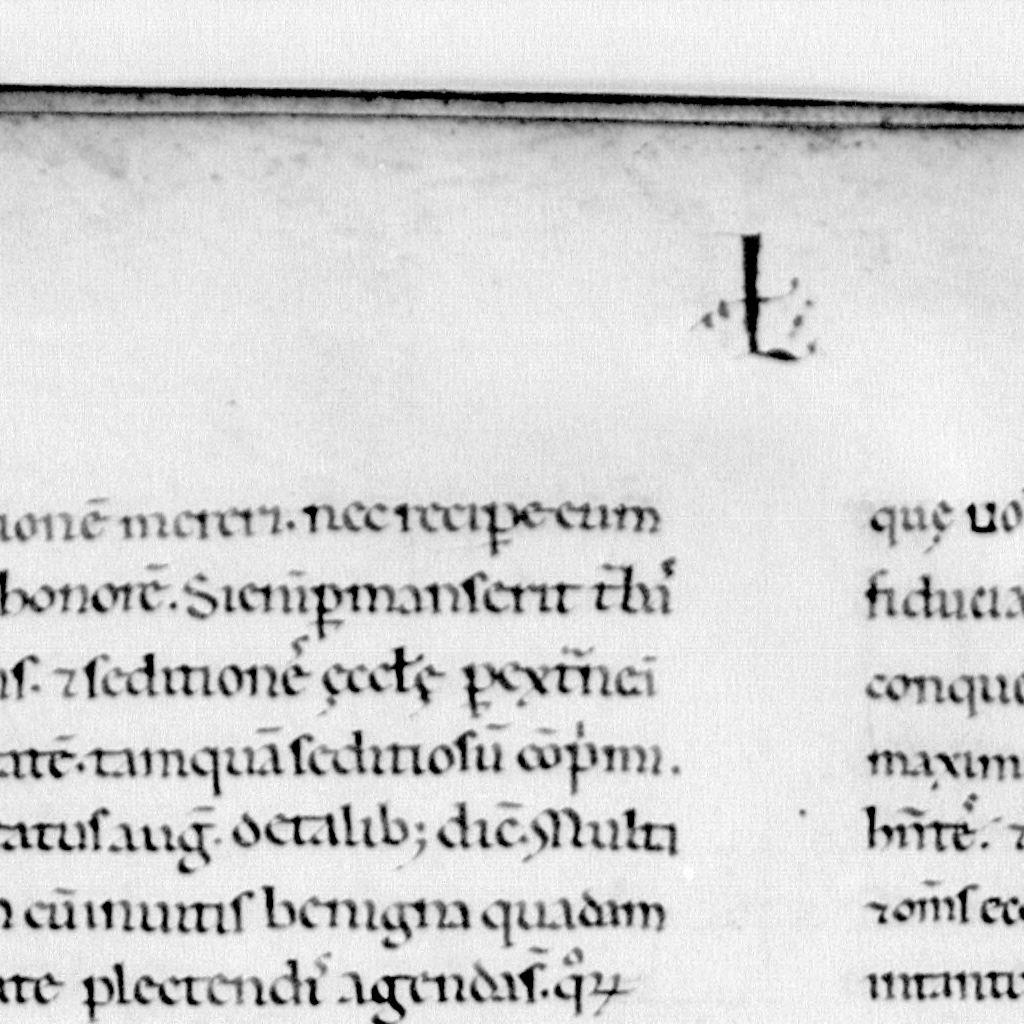 Ł
ionē mereri. nec recipe eum
honorē. Si eni̅ p̱manserit tħi
ıſ. ⁊ ſeditionē ęccl̵ę p̱ ext̅nei̅
atē. tamquā ſeditioſū cō p̍mi.
tatuſ auḡ. de talib; dic̅. Multi
cū inuitiſ benigna quadam
ate plectendi agendaſ̅. qͦꝝ
quę uo
fiducia
conque
maxim
hn̅tē. ⁊
⁊ om̅ſ ecc
intanti